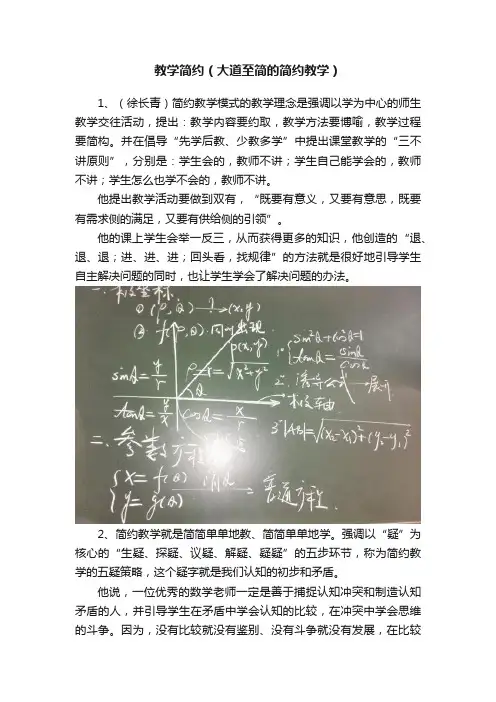 教学简约（大道至简的简约教学）
1、（徐长青）简约教学模式的教学理念是强调以学为中心的师生
教学交往活动，提出：教学内容要约取，教学方法要博喻，教学过程
要简构。并在倡导“先学后教、少教多学”中提出课堂教学的“三不
讲原则”，分别是：学生会的，教师不讲；学生自己能学会的，教师
不讲；学生怎么也学不会的，教师不讲。
他提出教学活动要做到双有，“既要有意义，又要有意思，既要
有需求侧的满足，又要有供给侧的引领”。
他的课上学生会举一反三，从而获得更多的知识，他创造的“退、
退、退；进、进、进；回头看，找规律”的方法就是很好地引导学生
自主解决问题的同时，也让学生学会了解决问题的办法。
一、极坐标
① (ρ,θ) ? (x,y)
② ρ,θ) 同时出现
p(x,y)
1° { sin²θ+cos²θ=1
tanθ= sinθ/cosθ
sinθ= y/r
ρ=r=√x²+y²
θ
2° 诱导公式 → 展开
极轴
tanθ= y/x
cosθ= x/r
3° |AB|=√(x₂-x₁)²+(y₂-y₁)²
二、参数方程
{ x=f(θ) 消θ
y=g(θ)
普通方程
2、简约教学就是简简单单地教、简简单单地学。强调以“疑”为
核心的“生疑、探疑、议疑、解疑、疑疑”的五步环节，称为简约教
学的五疑策略，这个疑字就是我们认知的初步和矛盾。
他说，一位优秀的数学老师一定是善于捕捉认知冲突和制造认知
矛盾的人，并引导学生在矛盾中学会认知的比较，在冲突中学会思维
的斗争。因为，没有比较就没有鉴别、没有斗争就没有发展，在比较